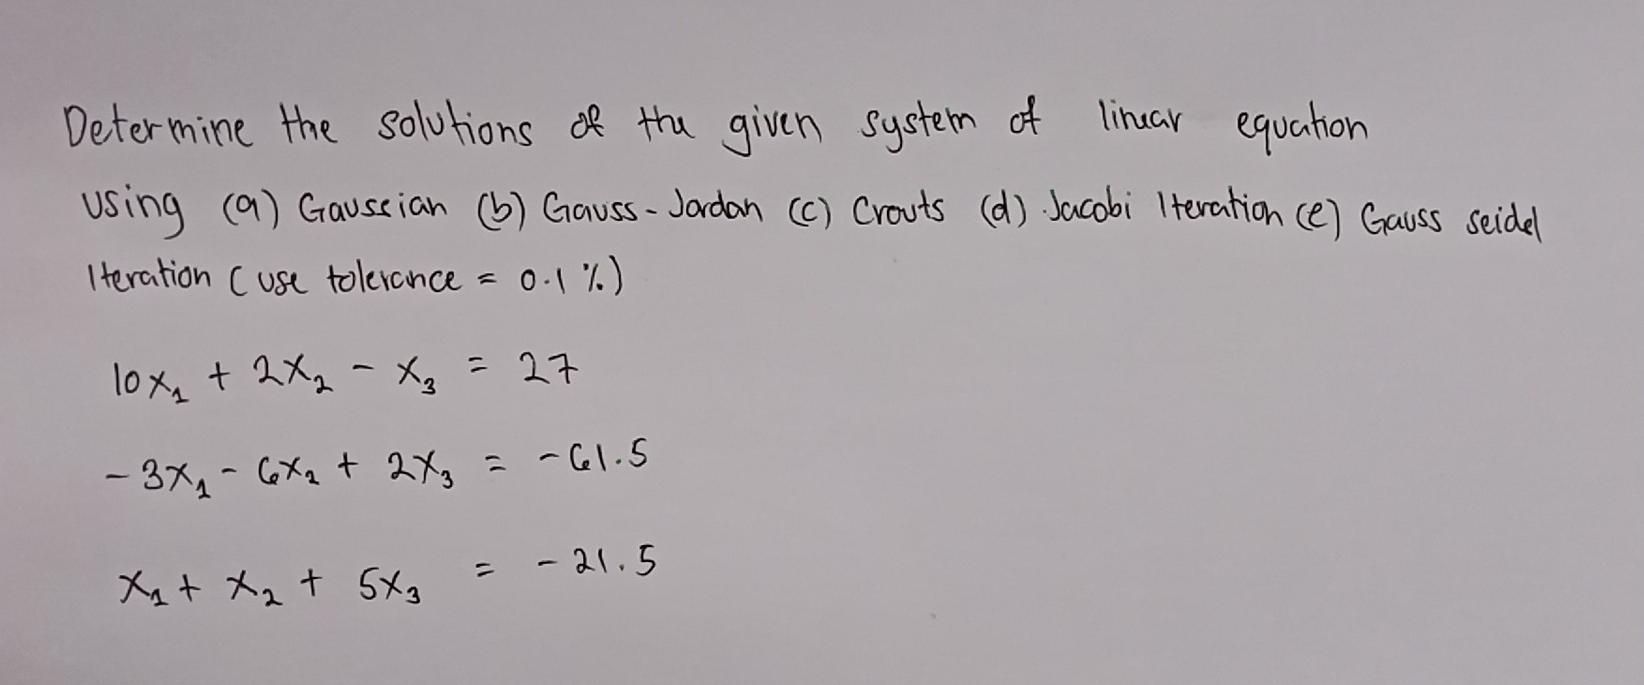 Determine the solutions of the given system of linear equation
using (a) Gaussian (b) Gauss-Jordan (c) Crouts (d) Jacobi Iteration (e) Gauss seidel
Iteration (use tolerance = 0.1 %)
10x₁ + 2x₂ - x₃ = 27
-3x₁ - 6x₂ + 2x₃ = -61.5
x₁ + x₂ + 5x₃ = -21.5